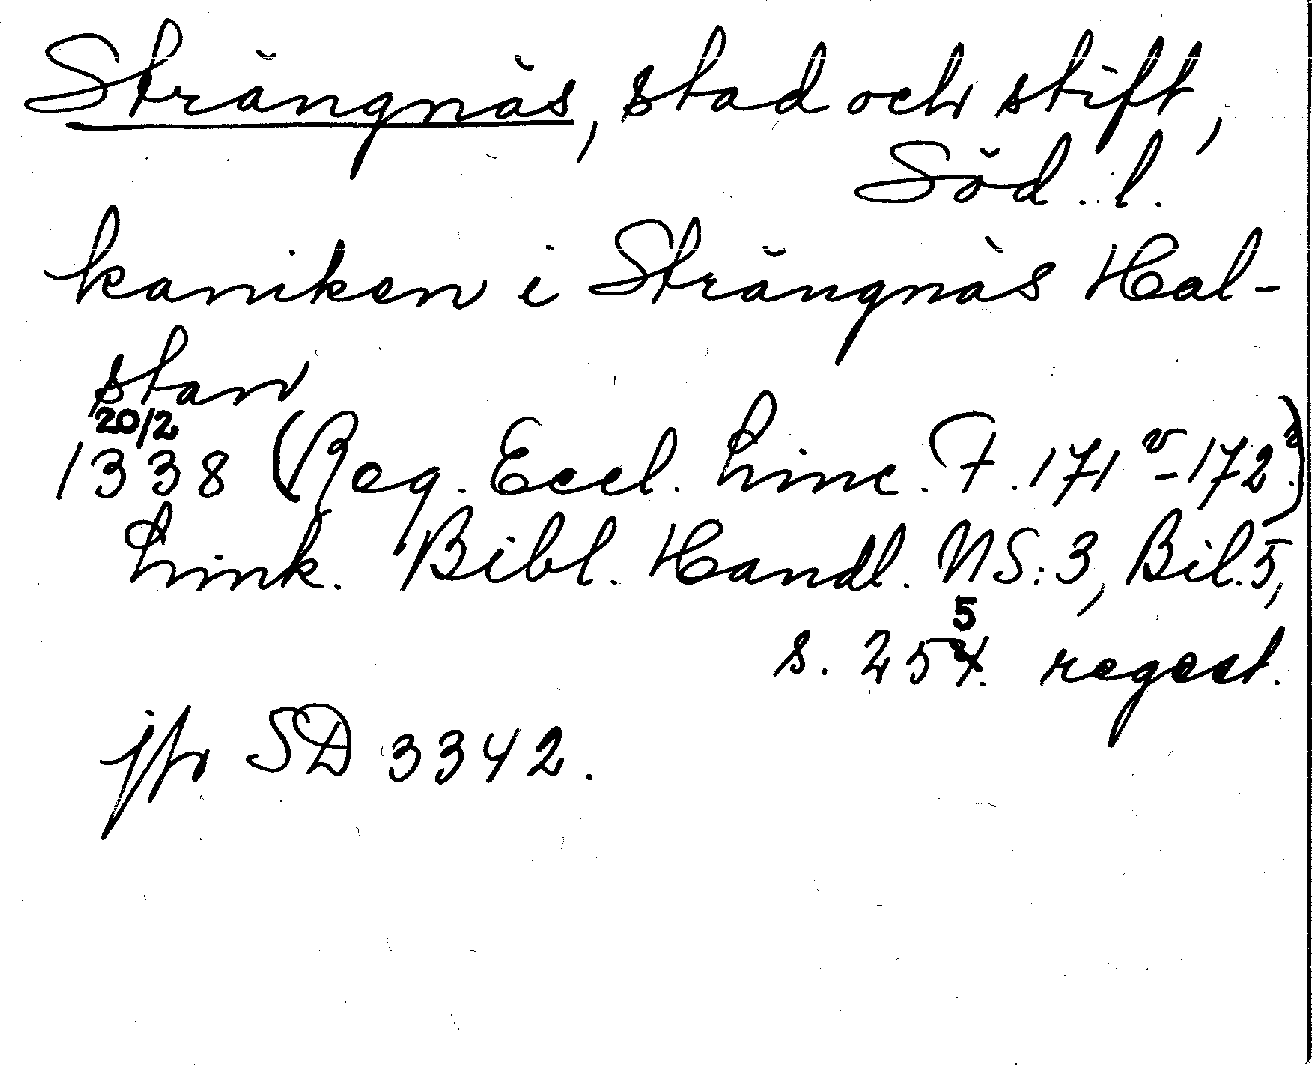 Strängnäs, stad och stift,
Söd. l.
kaniken i Strängnäs Hal-
stan
20/2
1338 (Reg. Eccl. Linc. F. 171v-172v)
Link. Bibl. Handl. NS: 3, Bil. 5,
s. 255 regest.
jfr SD 3342.